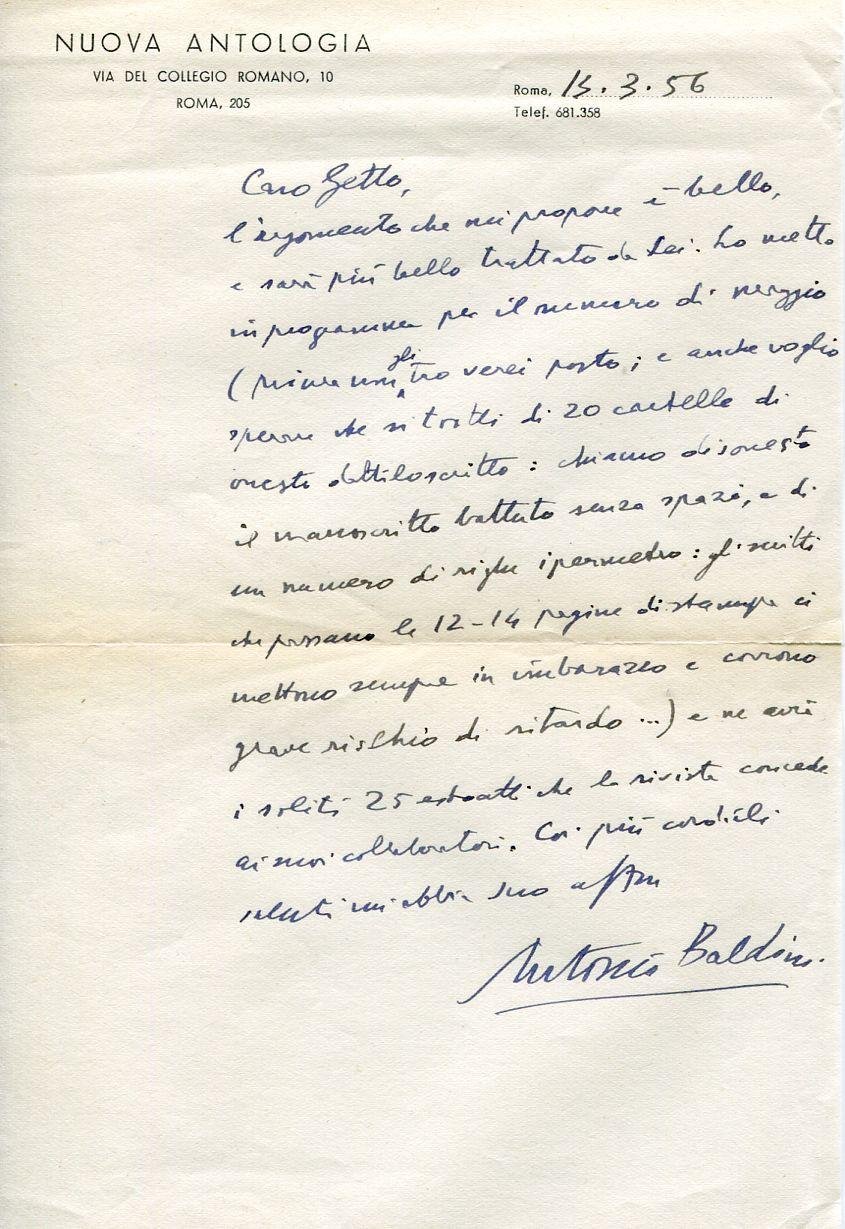 NUOVA ANTOLOGIA
VIA DEL COLLEGIO ROMANO, 10
ROMA, 205
Roma, 13.3.56
Telef. 681.358
Caro Getto,
l'argomento che mi propone è bello,
e sarà più bello trattato da Lei. Lo metto
in programma per il numero di maggio
(prima non gli troverei posto; e anche voglio
sperare che si tratti di 20 cartelle di
onesto dattiloscritto: chiamo disonesto
il manoscritto battuto senza spazi, e di
un numero di righe ipermetro: gli scritti
che passano le 12-14 pagine di stampa ci
mettono sempre in imbarazzo e corrono
grave rischio di ritardo ...) e ne avrà
i soliti 25 estratti che la rivista concede
ai suoi collaboratori. Coi più cordiali
saluti mi abbia suo affmo
Antonio Baldini.